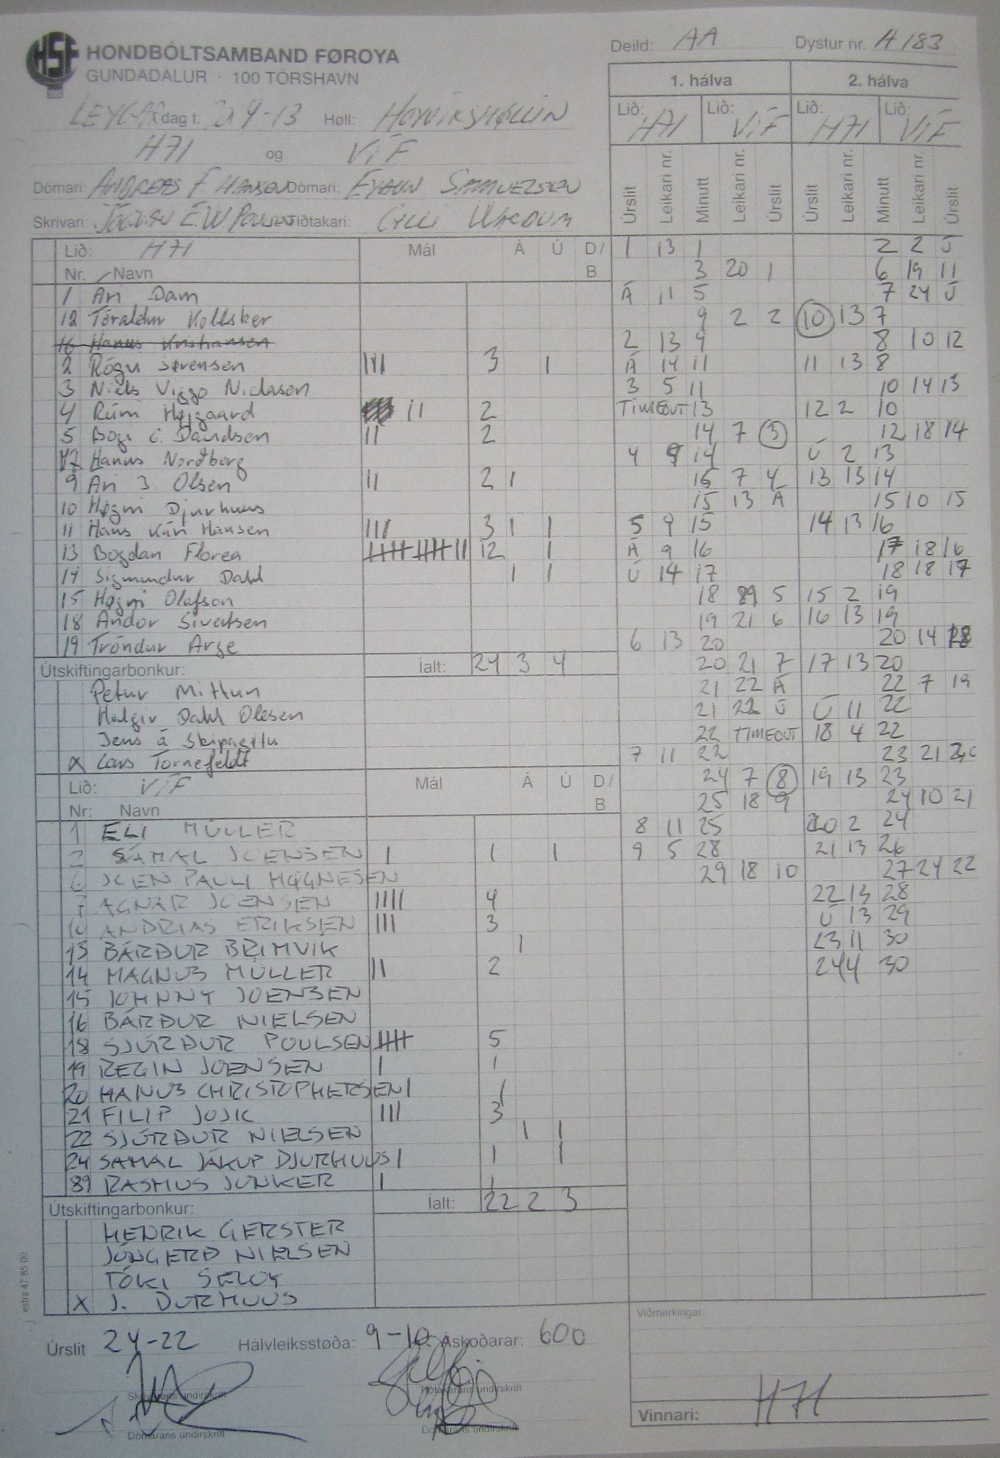 HSF HONDBÓLTSAMBAND FØROYA
GUNDADALUR · 100 TÓRSHAVN
Deild: AA Dystur nr. H 183
1. hálva 2. hálva
dag t. 4-13 Høll:
Lið: H71 Lið: VÍF Lið: H71 Lið: VÍF
H71 og VÍF
Dómari: ANDREAS F. HANSEN Dómari: EYDUN SAMUELSEN
Skrivari: Tíðtakari:
Úrslit Leikari nr. Minutt Leikari nr. Úrslit Úrslit Leikari nr. Minutt Leikari nr. Úrslit
Lið: H71 Mál Á Ú D/B
Nr. Navn
1 Ari Dam
12 Tórálvur Kollsker
2 Rógvi Sørensen III 3 I
3 Niels Viggo Niclasen
4 Rúni Højgaard II 2
5 Bogi C. Davidsen II 2
Hanus Nordberg
9 Ari J Olsen II 2 I
10 Høgni Djurhuus
11 Hans Kári Hansen III 3 I I
13 Bogdan Florea IIIII IIIII II 12 I
14 Sigmundur Dahl I I
15 Høgni Olafson
18 Andor Sivertsen
19 Tróndur Arge
Útskiftingarbonkur: Ialt: 24 3 4
Petur Mittun
Helgir Dahl Olesen
Jens á Skipagøtu
X Lars Tornefeldt
Lið: VÍF Mál Á Ú D/B
Nr: Navn
1 ELI MÜLLER
2 SÁMAL JOENSEN I 1 I
6 JÓEN PAULI HØGNESEN
7 AGNAR JOENSEN IIII 4
10 ANDRIAS ERIKSEN III 3
13 BÁRÐUR BRIMVIK I
14 MAGNUS MÜLLER II 2
15 JOHNNY JOENSEN
16 BÁRÐUR NIELSEN
18 SJÚRÐUR POULSEN IIIII 5
19 REGIN JOENSEN I 1
20 HANUS CHRISTOPHERSEN I 1
21 FILIP JOJIC III 3
22 SJÚRÐUR NIELSEN I I
24 SÁMAL JÁKUP DJURHUUS I 1 I
89 RASMUS JUNKER I 1
Útskiftingarbonkur: Íalt: 22 2 3
HENRIK GERSTER
JÓNGERÐ NIELSEN
TÓKI SELOY
X J. DURHUUS
1 13 1
3 20 1
Á 11 5
9 2 2
2 13 9
Á 14 11
3 5 11
TIMEOUT 13
14 7 3
4 9 14
15 7 4
15 13 Á
5 9 15
Á 9 16
Ú 14 17
18 89 5
19 21 6
6 13 20
20 21 7
21 22 Á
21 22 Ú
22 TIMEOUT
7 11 22
24 7 8
25 18 9
8 11 25
9 5 28
29 18 10
2 2 Ú
6 19 11
7 24 Ú
10 13 7
8 10 12
11 13 8
10 14 13
12 2 10
12 18 14
Ú 2 13
13 13 14
15 10 15
14 13 16
17 18 16
18 18 17
15 2 19
16 13 19
20 14 18
17 13 20
22 7 19
Ú 11 22
18 4 22
23 21 20
19 13 23
24 10 21
20 2 24
21 13 26
27 24 22
22 13 28
Ú 13 29
23 11 30
24 4 30
Úrslit 24-22 Hálvleiksstøða: 9-10 Áskoðarar: 600
Viðmerkingar
Skrivarans undirskrift Tíðtakarans undirskrift
Dómarans undirskrift Dómarans undirskrift
Vinnari: H71
estra 47 85 00